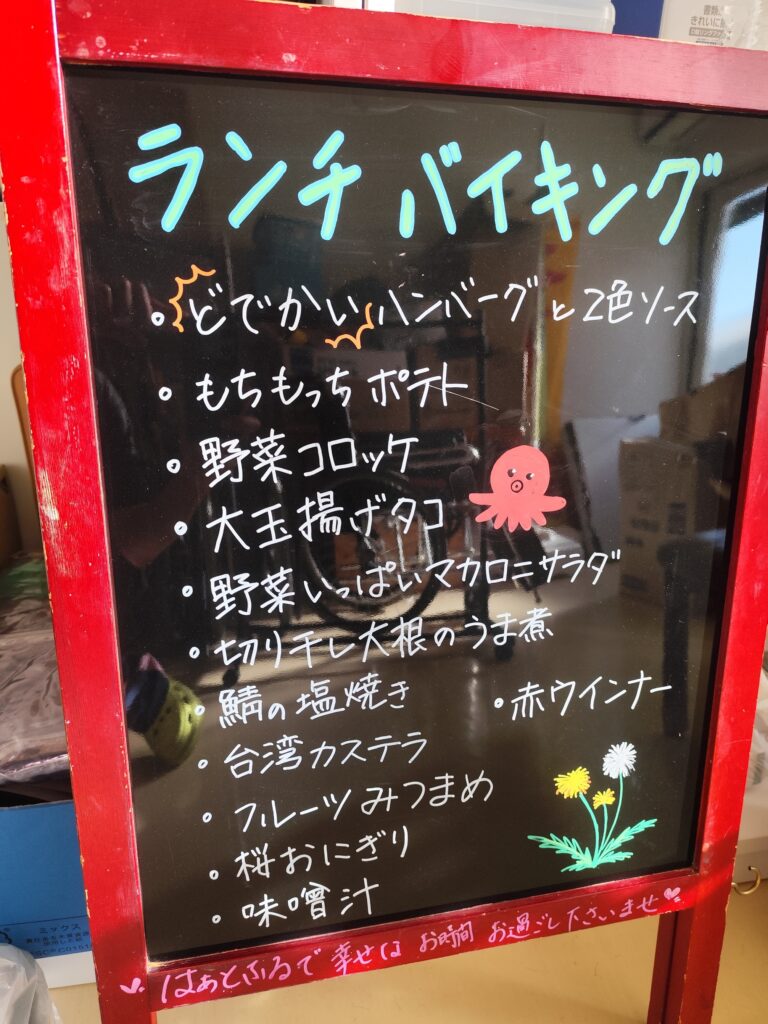 書類
きれいに
ランチ バイキング
・どでかいハンバーグと2色ソース
・もちもっちポテト
・野菜コロッケ
・大玉揚げタコ
・野菜いっぱいマカロニサラダ
・切り干し大根のうま煮
・鯖の塩焼き ・赤ウインナー
・台湾カステラ
・フルーツみつまめ
・桜おにぎり
・味噌汁
はぁとふるで幸せな お時間 お過ごし下さいませ
ミックス